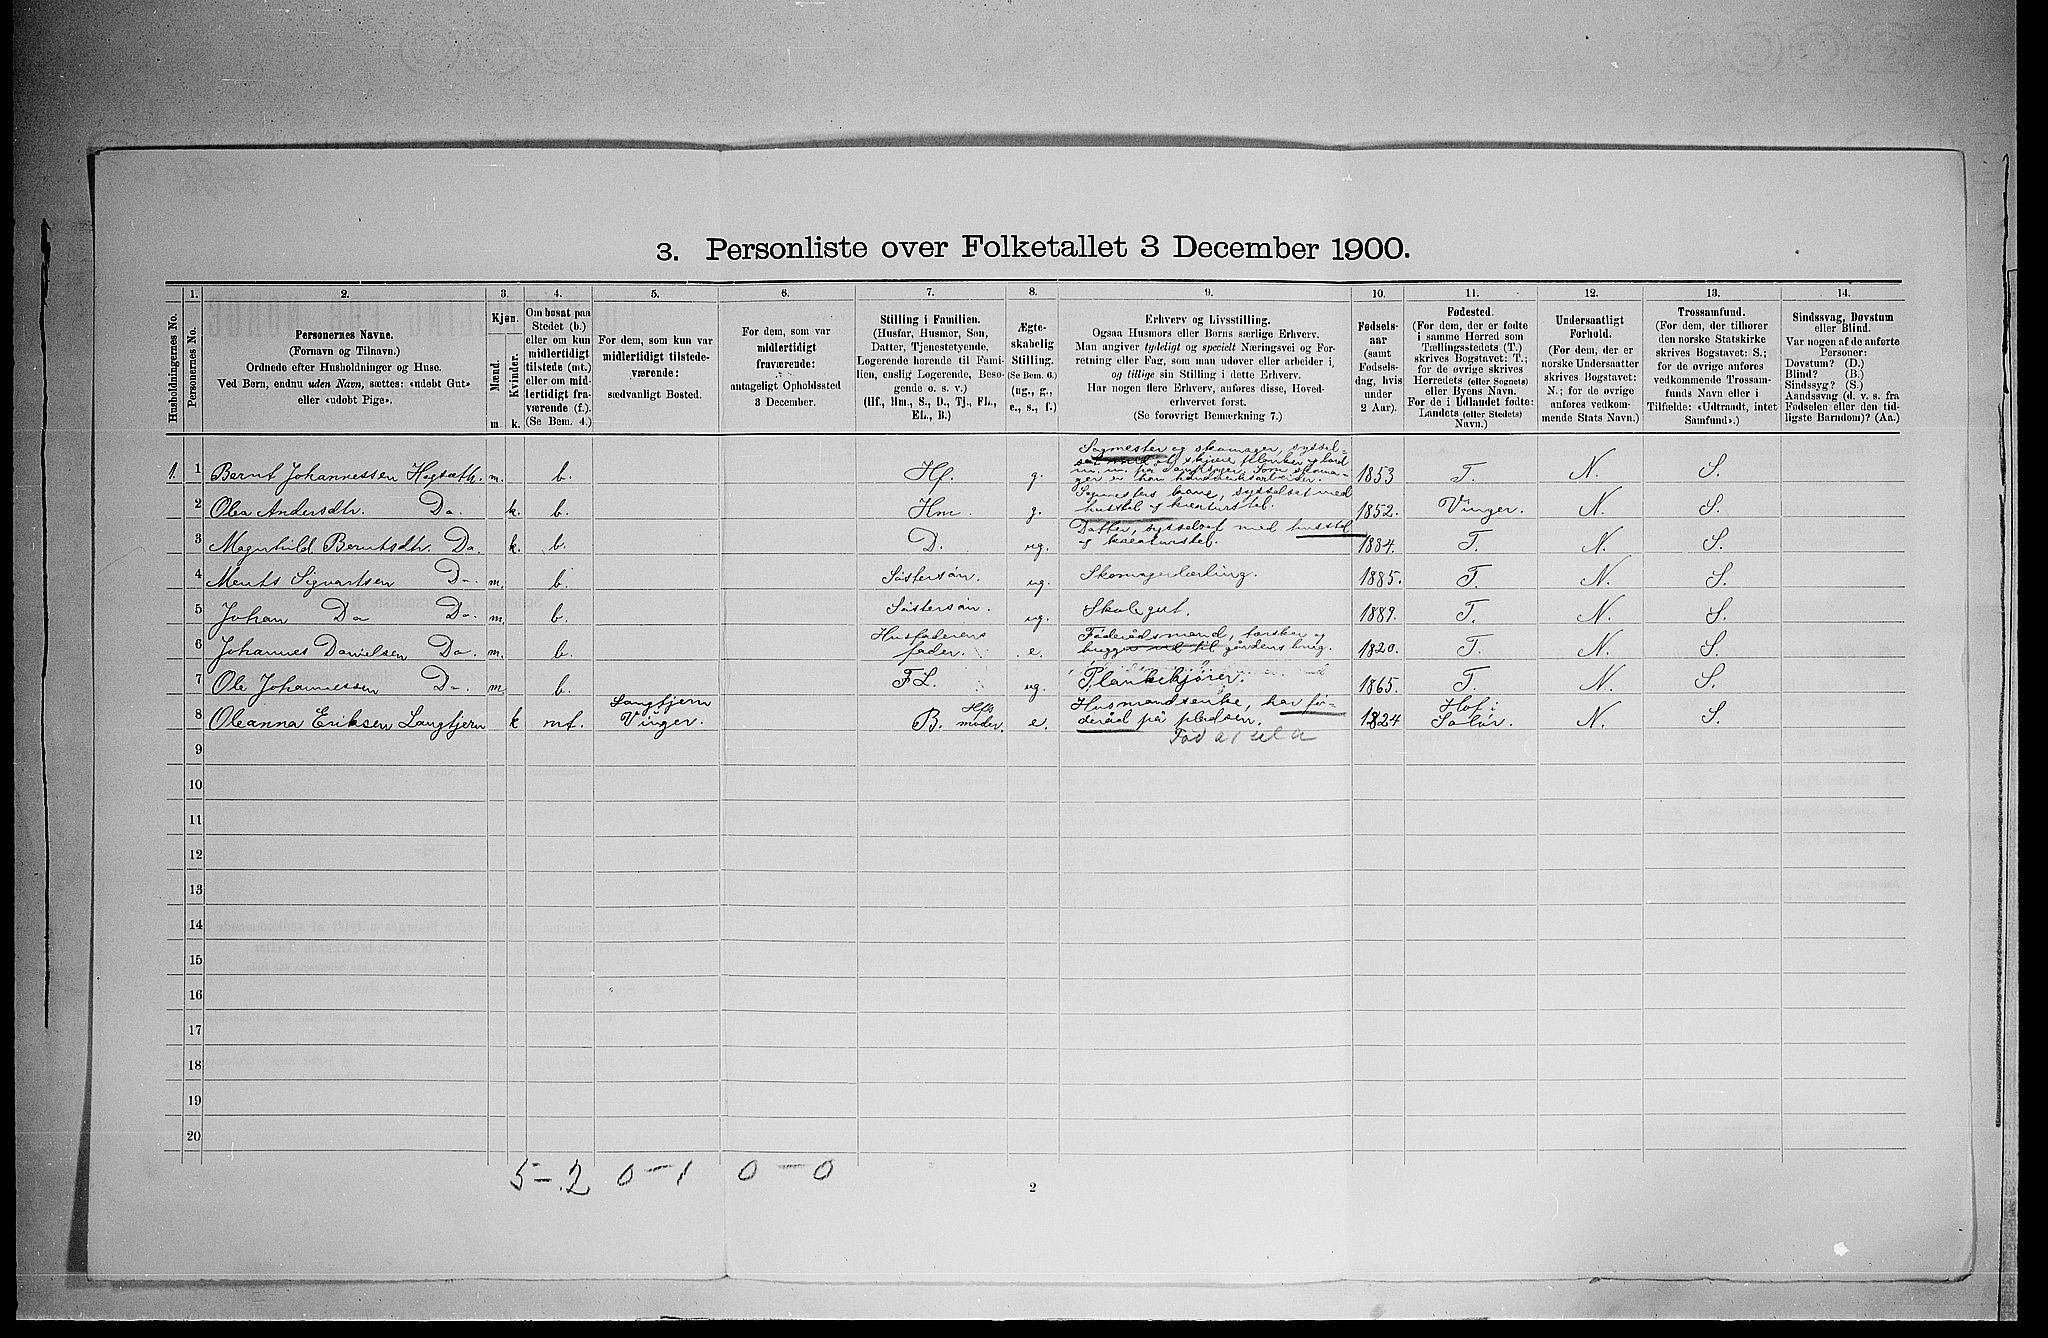 3. Personliste over Folketallet 3 December 1900.
Husholdningernes No.
1.
Personernes No.
2.
Personernes Navne.
(Fornavn og Tilnavn.)
Ordnede efter Husholdninger og Huse.
Ved Børn, endnu uden Navn, sættes: «udøbt Gut»
eller «udøbt Pige».
3.
Kjøn.
Mænd.
Kvinder.
m. k.
4.
Om bosat paa
Stedet (b.)
eller om kun
midlertidigt
tilstede (mt.)
eller om mid-
lertidigt fra-
værende (f.).
(Se Bem. 4.)
5.
For dem, som kun var
midlertidigt tilstede-
værende:
sædvanligt Bosted.
6.
For dem, som var
midlertidigt
fraværende:
antageligt Opholdssted
3 December.
7.
Stilling i Familien.
(Husfar, Husmor, Søn,
Datter, Tjenestetyende,
Logerende hørende til Fami-
lien, enslig Logerende, Besø-
gende o. s. v.)
(Hf., Hm., S., D., Tj., FL.,
EL., B.)
8.
Ægte-
skabelig
Stilling.
(Se Bem. 6.)
(ug., g.,
e., s., f.)
9.
Erhverv og Livsstilling.
Ogsaa Husmors eller Børns særlige Erhverv.
Man angiver tydeligt og specielt Næringsvei og For-
retning eller Fag, som man udøver eller arbeider i,
og tillige sin Stilling i dette Erhverv.
Har nogen flere Erhverv, anføres disse, Hoved-
erhvervet først.
(Se forøvrigt Bemærkning 7.)
10.
Fødsels-
aar
(samt
Fødsels-
dag, hvis
under
2 Aar).
11.
Fødested.
(For dem, der er fødte
i samme Herred som
Tællingsstedets (T.)
skrives Bogstavet: T.;
for de øvrige skrives
Herredets (eller Sognets)
eller Byens Navn.
For de i Udlandet fødte:
Landets (eller Stedets)
Navn.)
12.
Undersaatligt
Forhold.
(For dem, der er
norske Undersaatter
skrives Bogstavet:
N.; for de øvrige
anføres vedkom-
mende Stats Navn.)
13.
Trossamfund.
(For dem, der tilhører
den norske Statskirke
skrives Bogstavet: S.;
for de øvrige anføres
vedkommende Trossam-
funds Navn eller i
Tilfælde: «Udtraadt, intet
Samfund».)
14.
Sindssvag, Døvstum
eller Blind.
Var nogen af de anførte
Personer:
Døvstum? (D.)
Blind? (B.)
Sindssyg? (S.)
Aandssvag (d. v. s. fra
Fødselen eller den tid-
ligste Barndom)? (Aa.)
1. 1 Bernt Johannessen Hogsæth. m. b. Hf. g. Sagmester og skomager, syssel-
sat med og skjære planker og bord
m. m. på Som skoma-
ger er han 1853 T. N. S.
2 Olea Andersdtr. Do. k. b. Hm. g. Sagmesters kone, sysselsat med
husstel og kreaturstel. 1852. Vinger. N. S.
3 Magnhild Berntsdtr. Do. k. b. D. ug. Datter, sysselsat med husstel
og kreaturstel. 1884. T. N. S.
4 Ments Sigvartsen Do. m. b. Søstersøn. ug. Skomagerlærling. 1885. T. N. S.
5 Johan Do Do. m. b. Søstersøn. ug. Skolegut. 1889. T. N. S.
6 Johannes Danielsen Do. m. b. Husfaderens
fader. e. Føderådsmand, tærsker og
hugger ved til gårdens brug. 1820. T. N. S.
7 Ole Johannessen Do. m. b. FL. ug. Plankekjører. 1865. T. N. S.
8 Oleanna Eriksen Langtjern k mt. Langtjern
Vinger. B. Hfs
moder. e. Husmandsenke, har fø-
deråd på pladsen. 1824 Hof i
Solør. N. S.
9
10
11
12
13
14
15
16
17
18
19
20
5 - 2 0 - 1 0 - 0
2